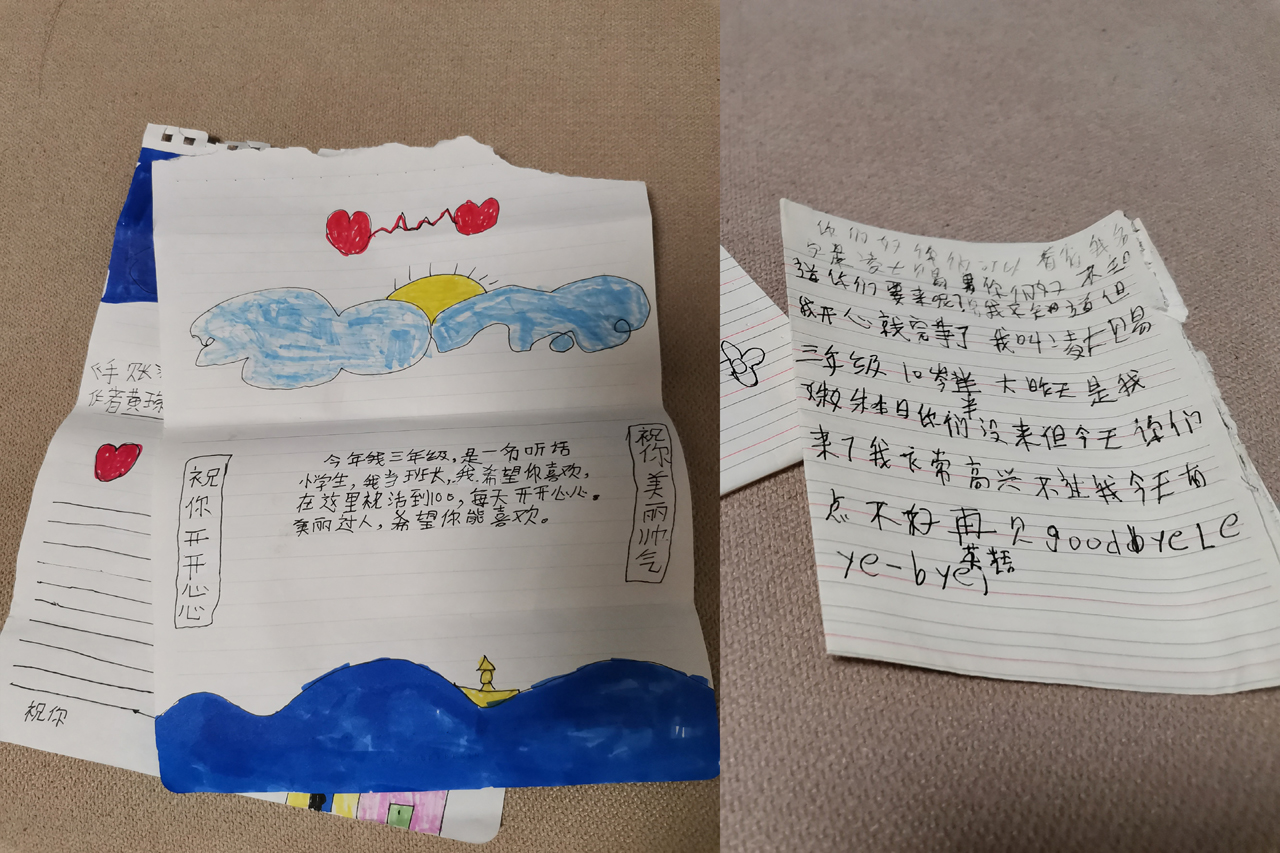 《手账
作者黄
祝你
祝你开开心心
今年线三年级,是一名听话
小学生,我当班长,我希望你喜欢,
在这里就活到100,每天开开心心。
美丽过人,希望你能喜欢。
祝你美丽帅气
你们好
字是凌 你们好 不知
道你们要来呢 我 道但
我开心就完事了 我叫凌
三年级 10岁 大昨天是我
日你们没来但今天 们
来了我 常高兴 不过我今天有
点不好再见goodbyeLe
ye-bye,英语